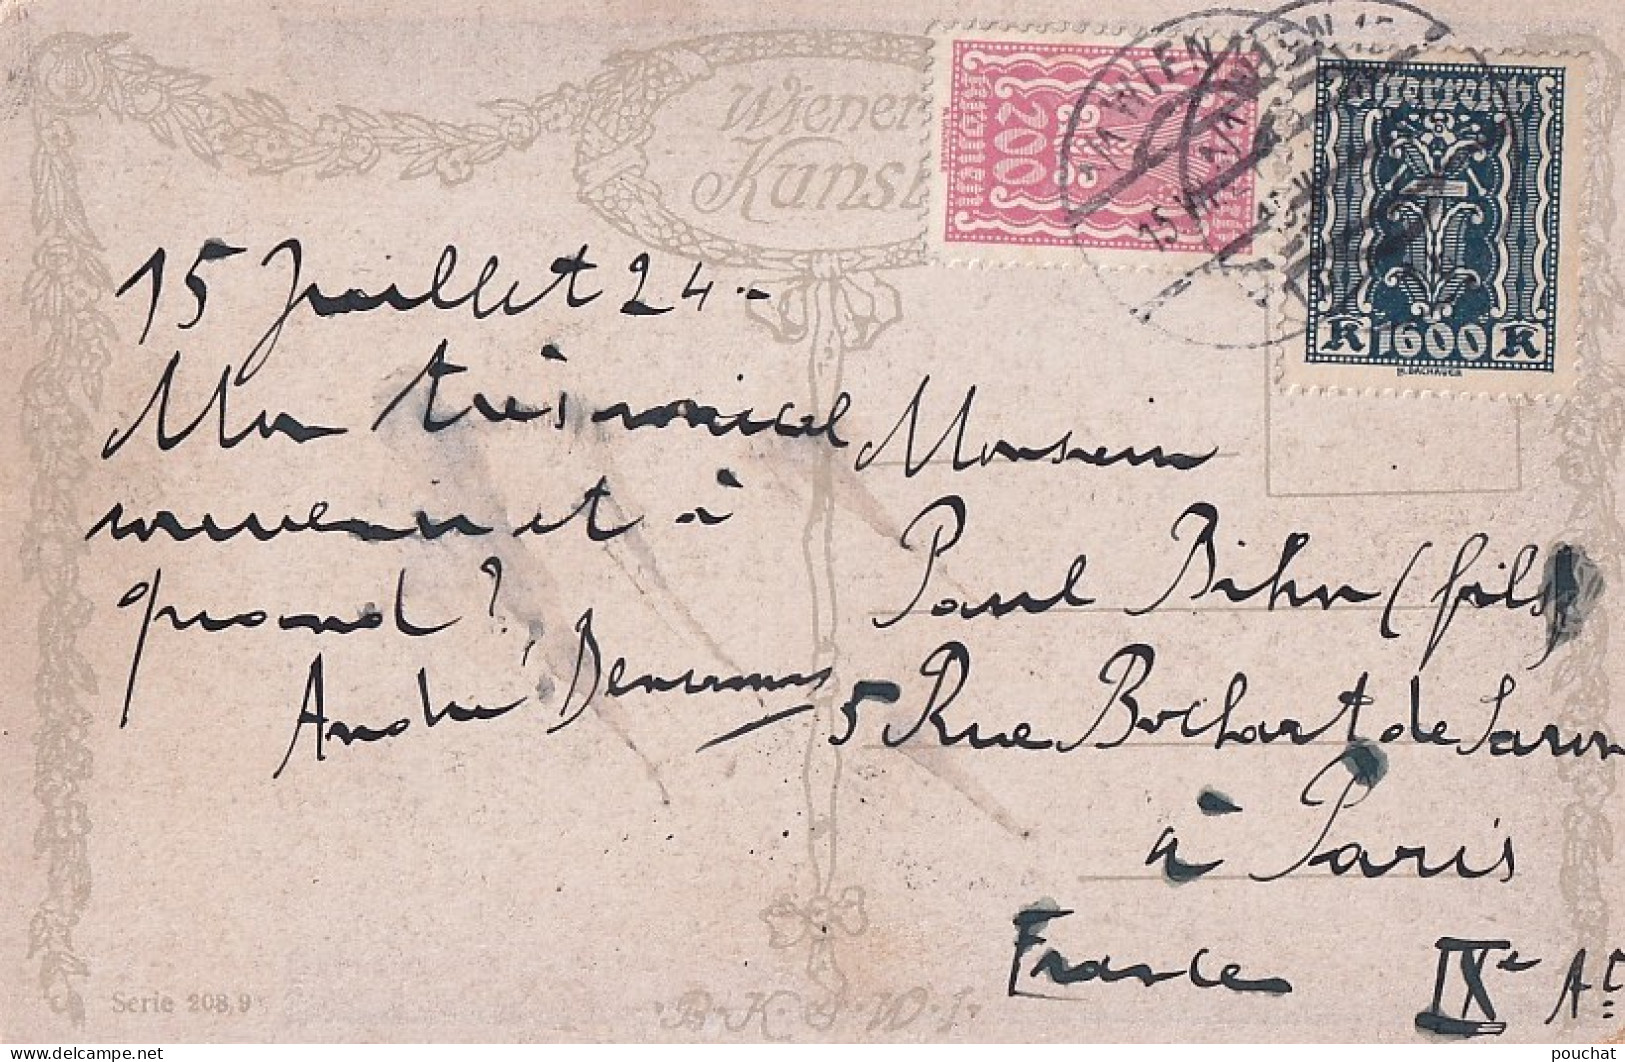 Wiener
Kunst
200
Österreich
K 1600 K
WIEN
15 Juillet 24 -
Mon très amical
souvenir et à
quand ?
André
Monsieur
Paul Bihn (fils)
5 Rue Bochart de Saron
à Paris
France IXe Art
Serie 208,9
B.K.W.I.
pouchat